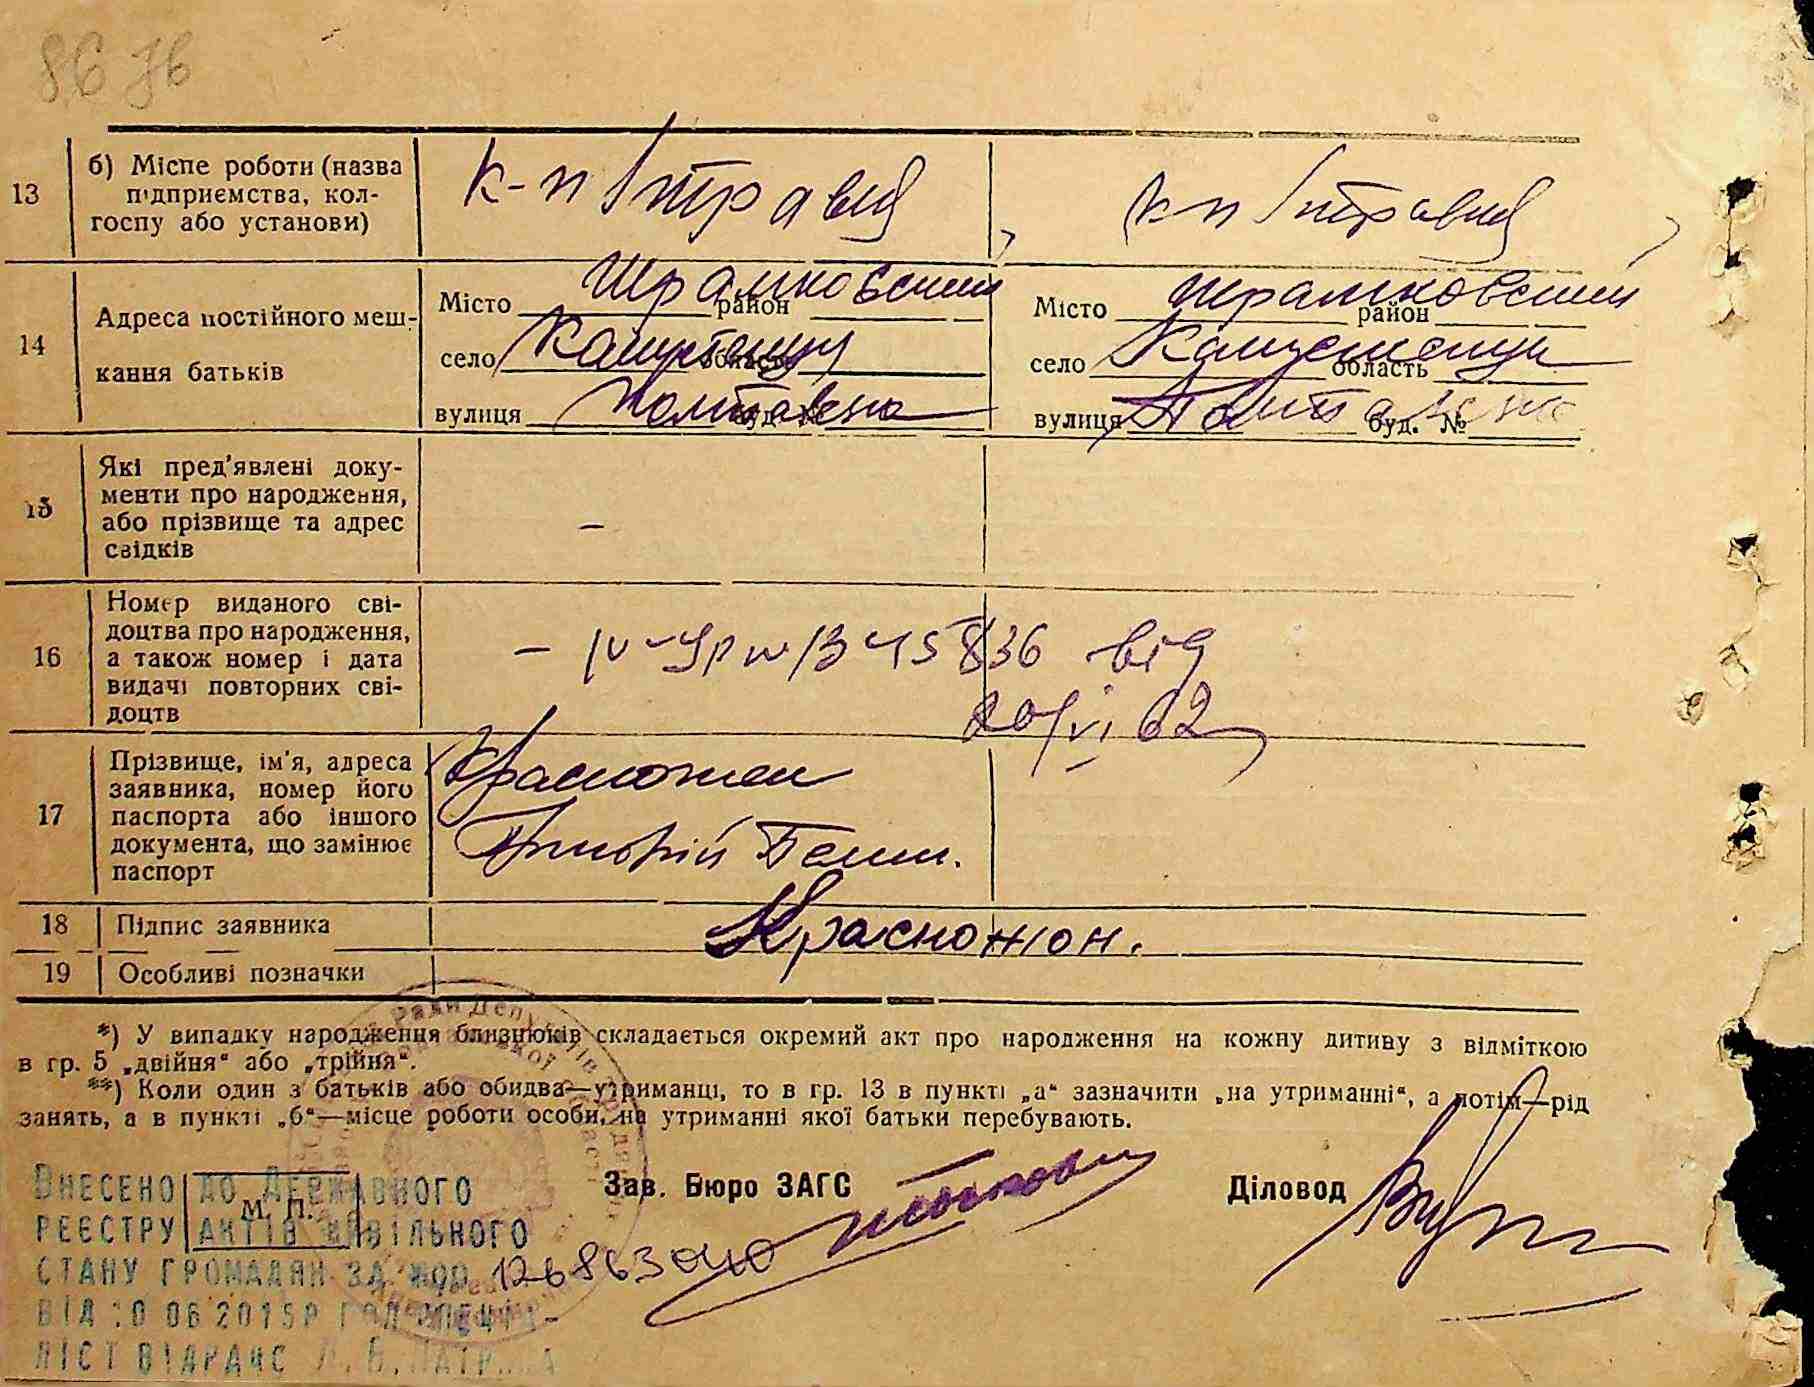 86 76
13
б) Місце роботи (назва
підприємства, кол-
госпу або установи)
к-п 1 травня
к-п 1 травня
14
Адреса постійного меш-
кання батьків
Місто Шрамковский район
село Капустенци область
вулиця Полтавска буд. №
Місто Шрамковский район
село Капустенци область
вулиця Полтавска буд. №
15
Які пред'явлені доку-
менти про народження,
або прізвище та адрес
свідків
-
16
Номер виданого сві-
доцтва про народження,
а також номер і дата
видачі повторних сві-
доцтв
- IV-УР № 345836 від
20/VI 62
17
Прізвище, ім'я, адреса
заявника, номер його
паспорта або іншого
документа, що замінює
паспорт
Красножон
18
Підпис заявника
Красножон.
19
Особливі позначки
*) У випадку народження близнюків складається окремий акт про народження на кожну дитину з відміткою
в гр. 5 „двійня“ або „трійня“.
**) Коли один з батьків або обидва—утриманці, то в гр. 13 в пункті „а“ зазначити „на утриманні“, а потім—рід
занять, а в пункті „б“—місце роботи особи, на утриманні якої батьки перебувають.
М. П.
Зав. Бюро ЗАГС
Діловод
Внесено до Державного
реєстру актів цивільного
стану громадян за №00 126863040
від 10 06 2015р гол спеціа-
ліст відрацс